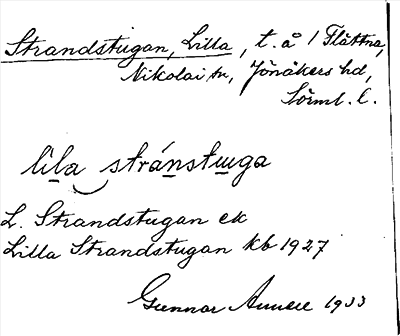 Strandstugan, Lilla, t. å / Flättna,
Nikolai sn, Jönåkers hd,
Sörml. l.
lila stránstuga
L. Strandstugan ek
Lilla Strandstugan kb 1927
Gunnar 1933